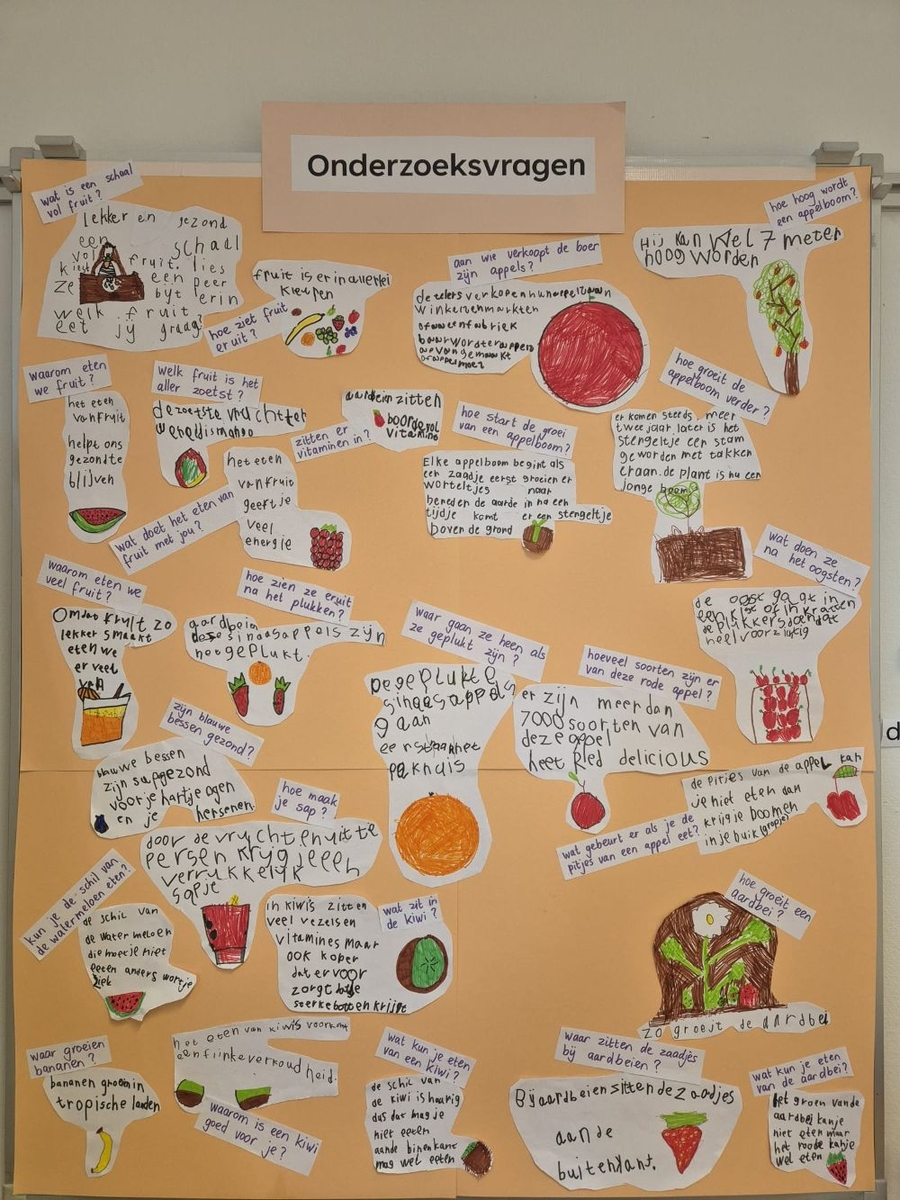 Onderzoeksvragen
wat is een schaal
vol fruit?
lekker en gezond
een schaal
vol fruit. lies
een peer
ze bijt erin
welk fruit
eet jij graag?
hoe ziet fruit
eruit?
fruit is er in allerlei
kleuren
aan wie verkoopt de boer
zijn appels?
de telers verkopen hun appels aan
winkels en markten
of aan een fabriek
hoe hoog wordt
een appelboom?
Hij kan wel 7 meter
hoog worden
waarom eten
we fruit?
het eten
van fruit
helpt ons
gezond te
blijven
welk fruit is het
aller zoetst?
de zoetste vrucht ter
wereld is mango
zitten er
vitaminen in?
aardbeien zitten
boordevol
vitamine
hoe start de groei
van een appelboom?
Elke appelboom begint als
een zaadje eerst groeien er
worteltjes naar
beneden de aarde in na een
tijdje komt er een stengeltje
boven de grond
hoe groeit de
appelboom verder?
er komen steeds meer
twee jaar later is het
stengeltje een stam
geworden met takken
eraan. de plant is nu een
jonge boom
wat doet het eten van
fruit met jou?
het eten
van fruit
geeft je
veel
energie
wat doen ze
na het oogsten?
de oogst gaat in
een kist of in kratten
de plukkers doen dat
heel voorzichtig
waarom eten we
veel fruit?
Omdat fruit zo
lekker smaakt
eten we
er veel
van
hoe zien ze eruit
na het plukken?
aardbein
deze sinaasappels zijn
net geplukt.
waar gaan ze heen als
ze geplukt zijn?
De geplukte
sinaasappels
gaan
eerst naar het
pakhuis
hoeveel soorten zijn er
van deze rode appel?
er zijn meer dan
7000 soorten van
deze appel
heet Red delicious
zijn blauwe
bessen gezond?
blauwe bessen
zijn supgezond
voor je hartje ogen
en je hersenen.
hoe maak
je sap?
door de vruchten uit te
persen krijg je een
verrukkelijk
sapje
wat gebeurt er als je de
pitjes van een appel eet?
de pitjes van de appel kan
je niet eten dan
krijg je boomen
in je buik (grapje)
kun je de schil van
de watermeloen eten?
de schil van
de watermeloen
die moet je niet
eeten anders wortje
ziek
wat zit in
de kiwi?
in kiwis zitten
veel vezels en
vitamines maar
ook koper
dat ervoor
zorgt dat je
sterke botten krijgt
hoe groeit een
aardbei?
zo groeit de aardbei
waar groeien
bananen?
bananen groein in
tropische landen
het eten van kiwis voorkomt
een flinke verkoudheid.
waarom is een kiwi
goed voor je?
wat kun je eten
van een kiwi?
de schil van
de kiwi is haarig
dus dat mag je
niet eeten
aande binenkant
mag wel eeten
waar zitten de zaadjes
bij aardbeien?
Bij aardbeien zitten de zaadjes
aan de
buitenkant.
wat kun je eten
van de aardbei?
het groen van de
aardbei kan je
niet eten maar
het roode kan je
wel eten